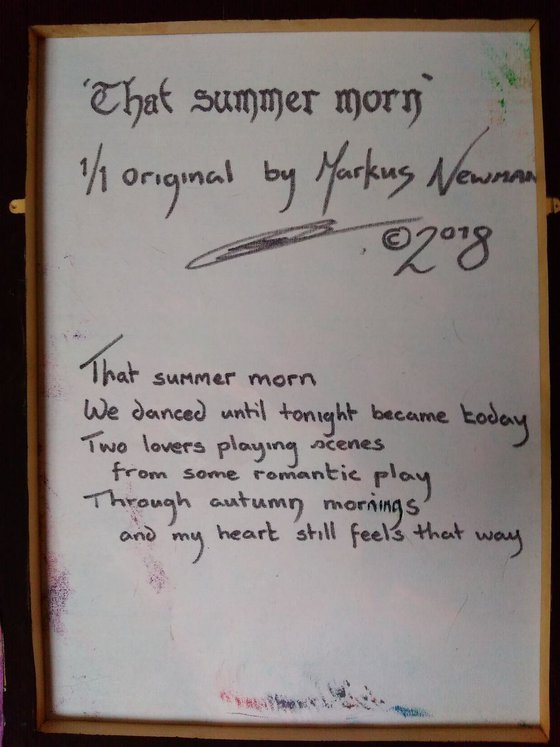 'That summer morn'
1/1 original by Markus Newman
©2018
That summer morn
We danced until tonight became today
Two lovers playing scenes
from some romantic play
Through autumn mornings
and my heart still feels that way